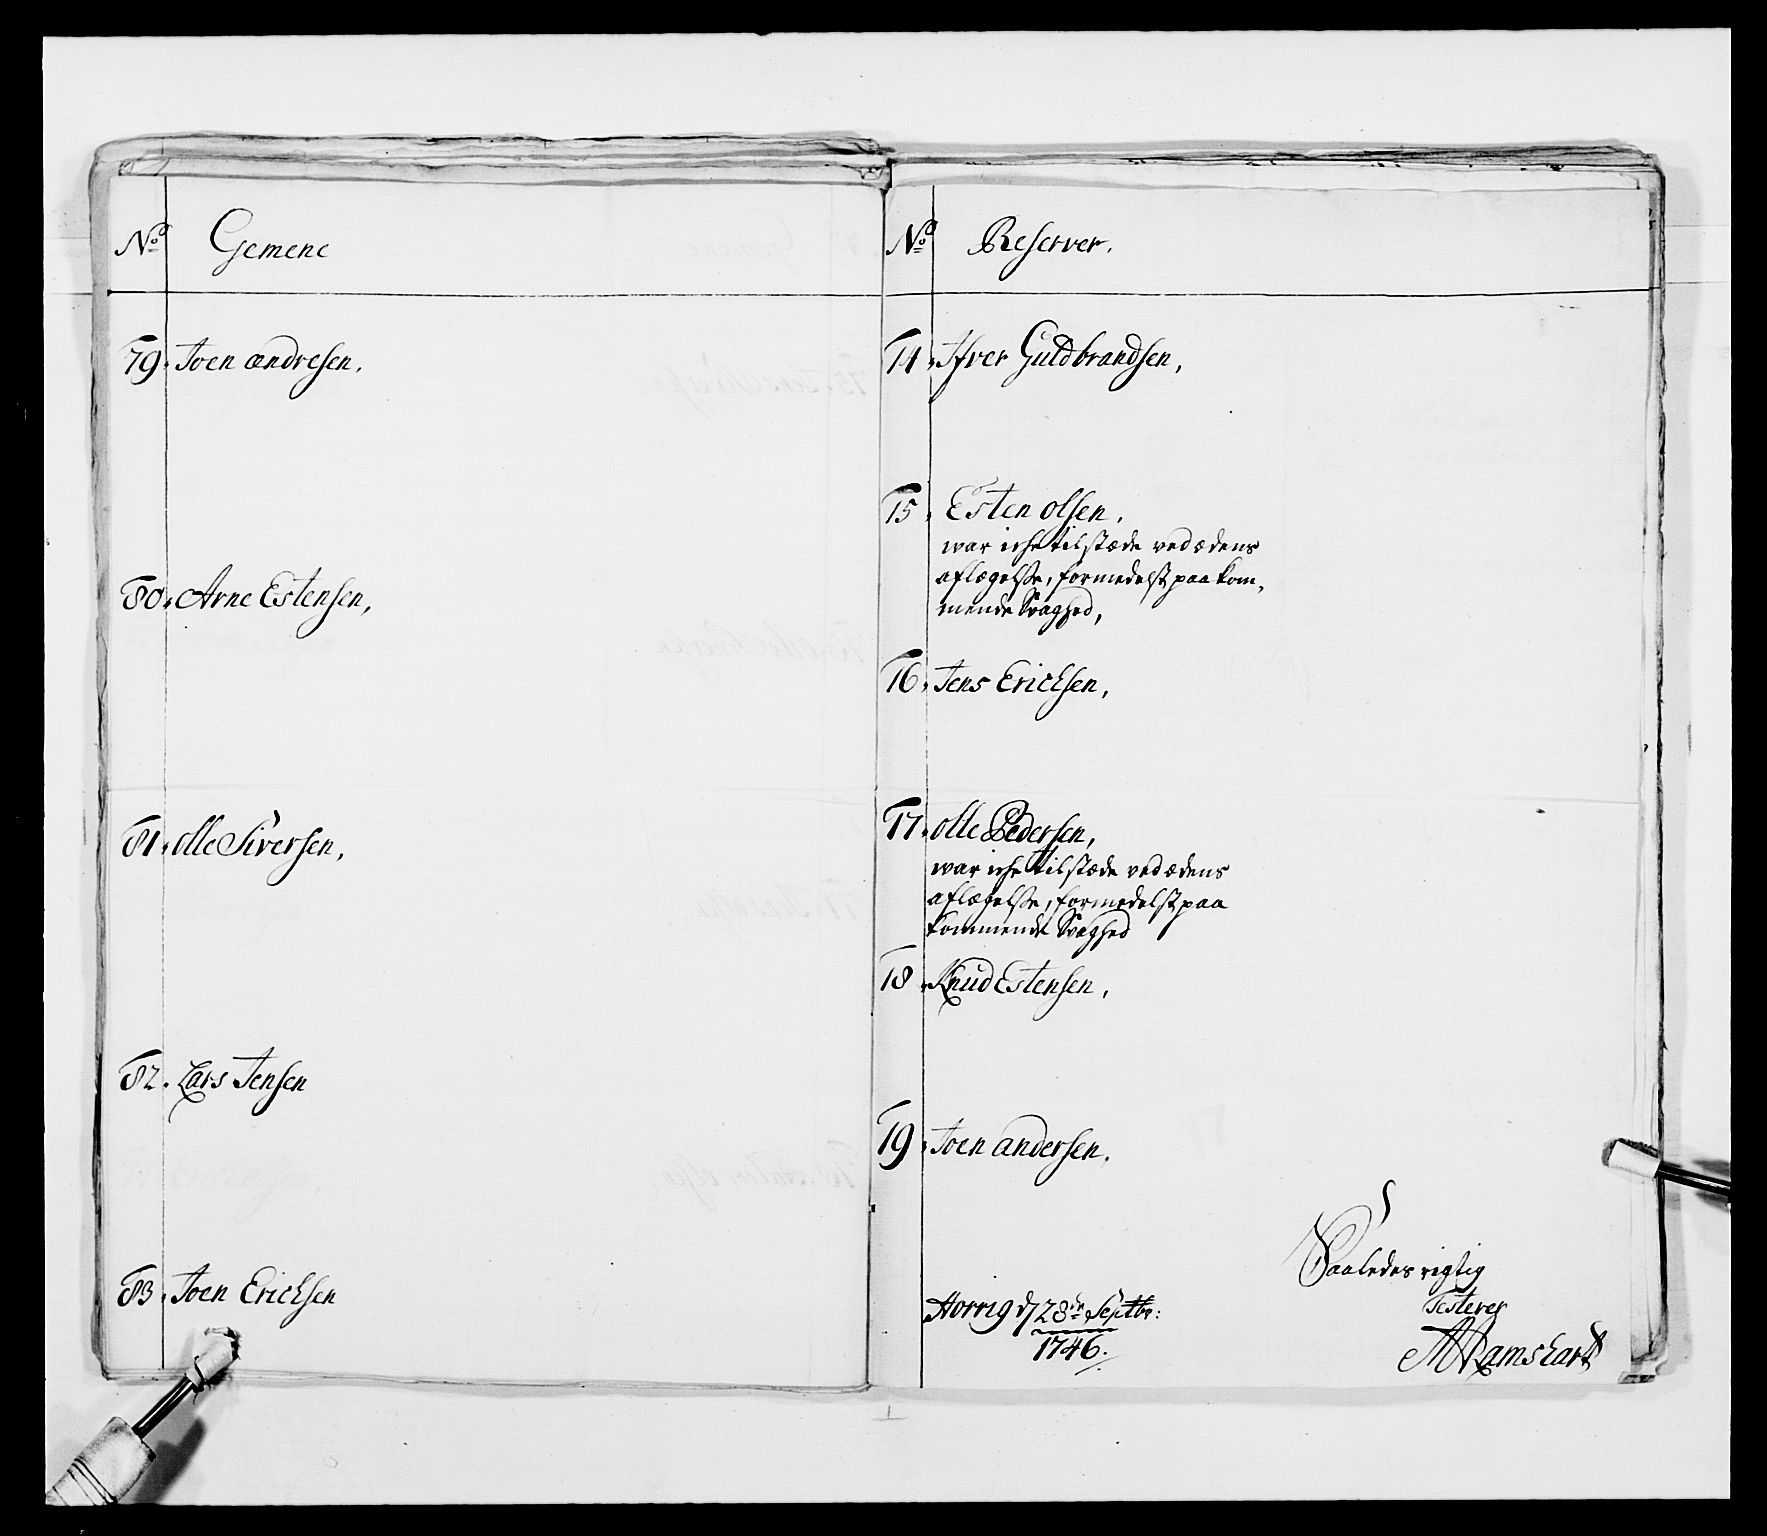 No Gemene
79. Joen andresen,
80. Arne Estensen,
81. olle Siversen,
82. Lars Jensen
83. Joen Erichsen
No Reserver.
74. Ifver Guldbrandsen,
75. Esten olsen,
war iche tilstæde ved ædens
aflægelse, formedelst paa kom,
mende Svaghed,
76. Jens Erichsen,
77. olle Pedersen,
war iche tilstæde ved ædens
aflægelse, formedelst paa
kommende Svaghed
78. Knud Estensen,
79. Joen andersen.
Saaledes rigtig
Testerer
Horrig d 28de Septbr:
1746.